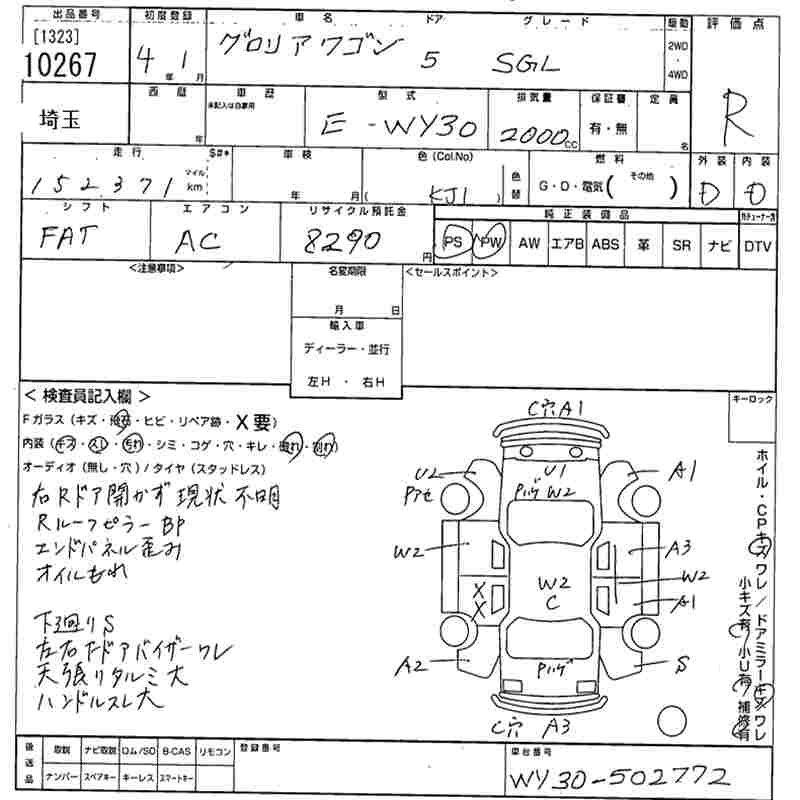 出品番号 初度登録 車名 ドア グレード 駆動 評価点
[1323]
10267
4年 1月 グロリアワゴン 5 SGL 2WD・4WD R
埼玉 西暦 年 車歴 未記入は自家用 型式 E-WY30 排気量 2000cc 保証書 有・無 定員 名
走行 152371 マイル km $#* 車検 年 月 色(Col.No) (KJ1) 色替 燃料 G・D・電気(その他) 外装 D 内装 D
シフト FAT エアコン AC リサイクル預託金 8290円 純正装備品
PS PW AW エアB ABS 革 SR ナビ DTV
<注意事項> 名変期限 月 日 <セールスポイント>
輸入車
ディーラー・並行
左H ・ 右H
<検査員記入欄> キーロック
Fガラス(キズ・飛石・ヒビ・リペア跡・X要)
内装(キズ・スレ・汚れ・シミ・コゲ・穴・キレ・割れ・剥れ)
オーディオ(無し・穴)/タイヤ(スタッドレス)
右Rドア開かず 現状 不明
Rルーフピラー BP
エンドパネル歪み
オイルもれ
下廻りS
左右Fドアバイザーワレ
天張りタルミ大
ハンドルスレ大
C穴A1
U2 U1 A1
Pアセ Pハゲ W2
W2 A3
W2
X W2 A1
X C
A2 Pハゲ S
C穴 A3
ホイル・CPキズワレ/ドアミラーキズワレ
小キズ有 小U有 補修有
後送品 取説 ナビ取説 ロム/SD B-CAS リモコン 登録番号 車台番号
ナンバー スペアキー キーレス スマートキー WY30-502772